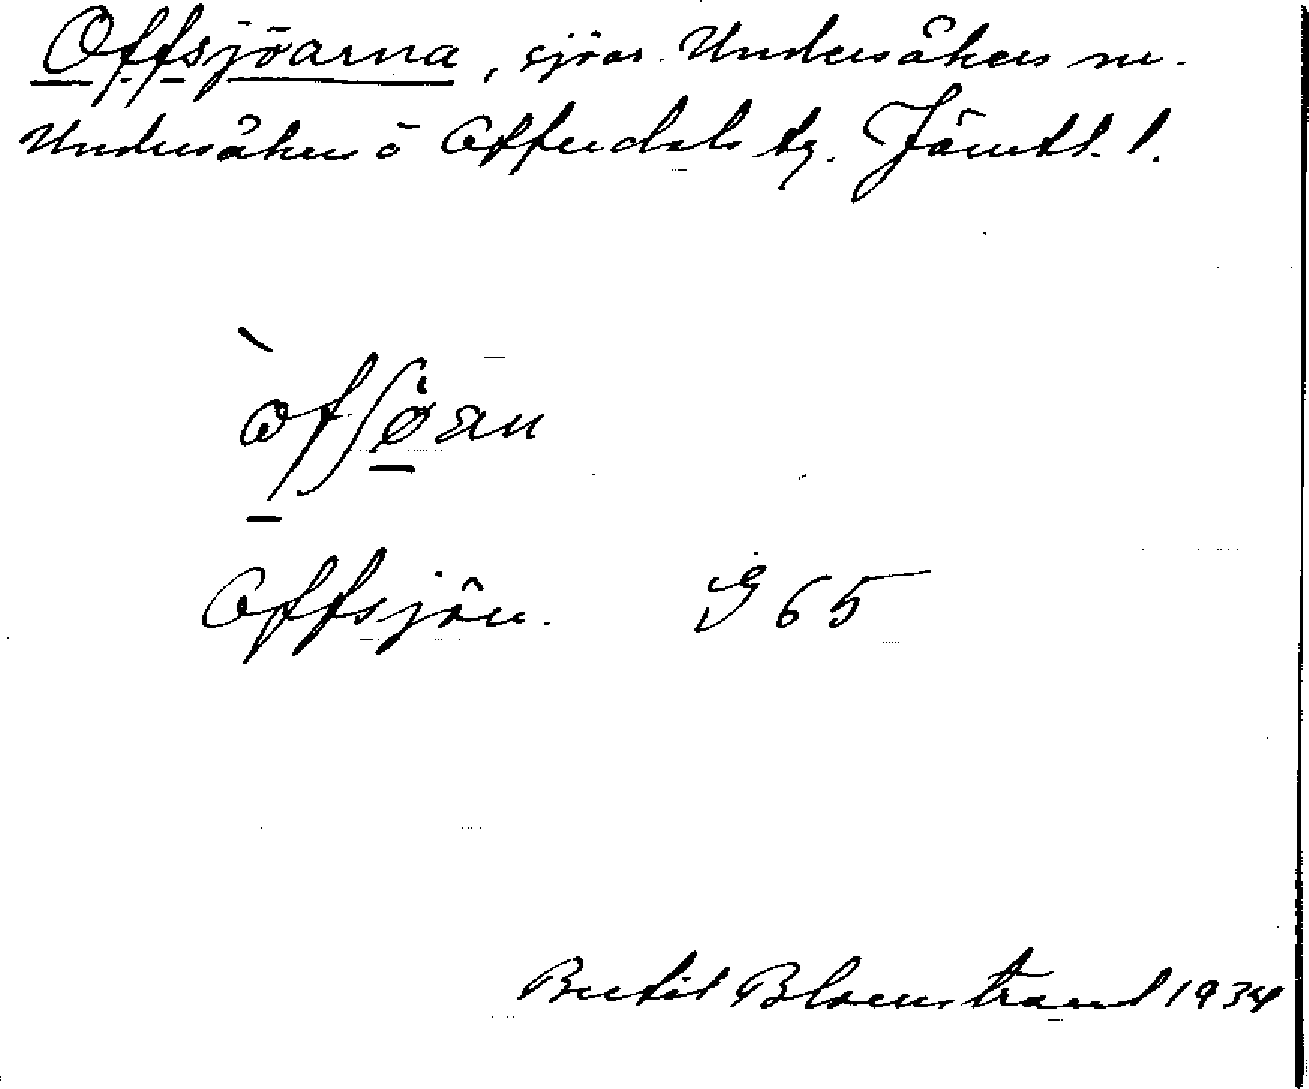 Offsjöarna, sjöar. Undersåkers sn.
Undersåkers o Offerdals tg. Jämtl. l.
Offsjön. G 65
Bertil Blomstrand 1934